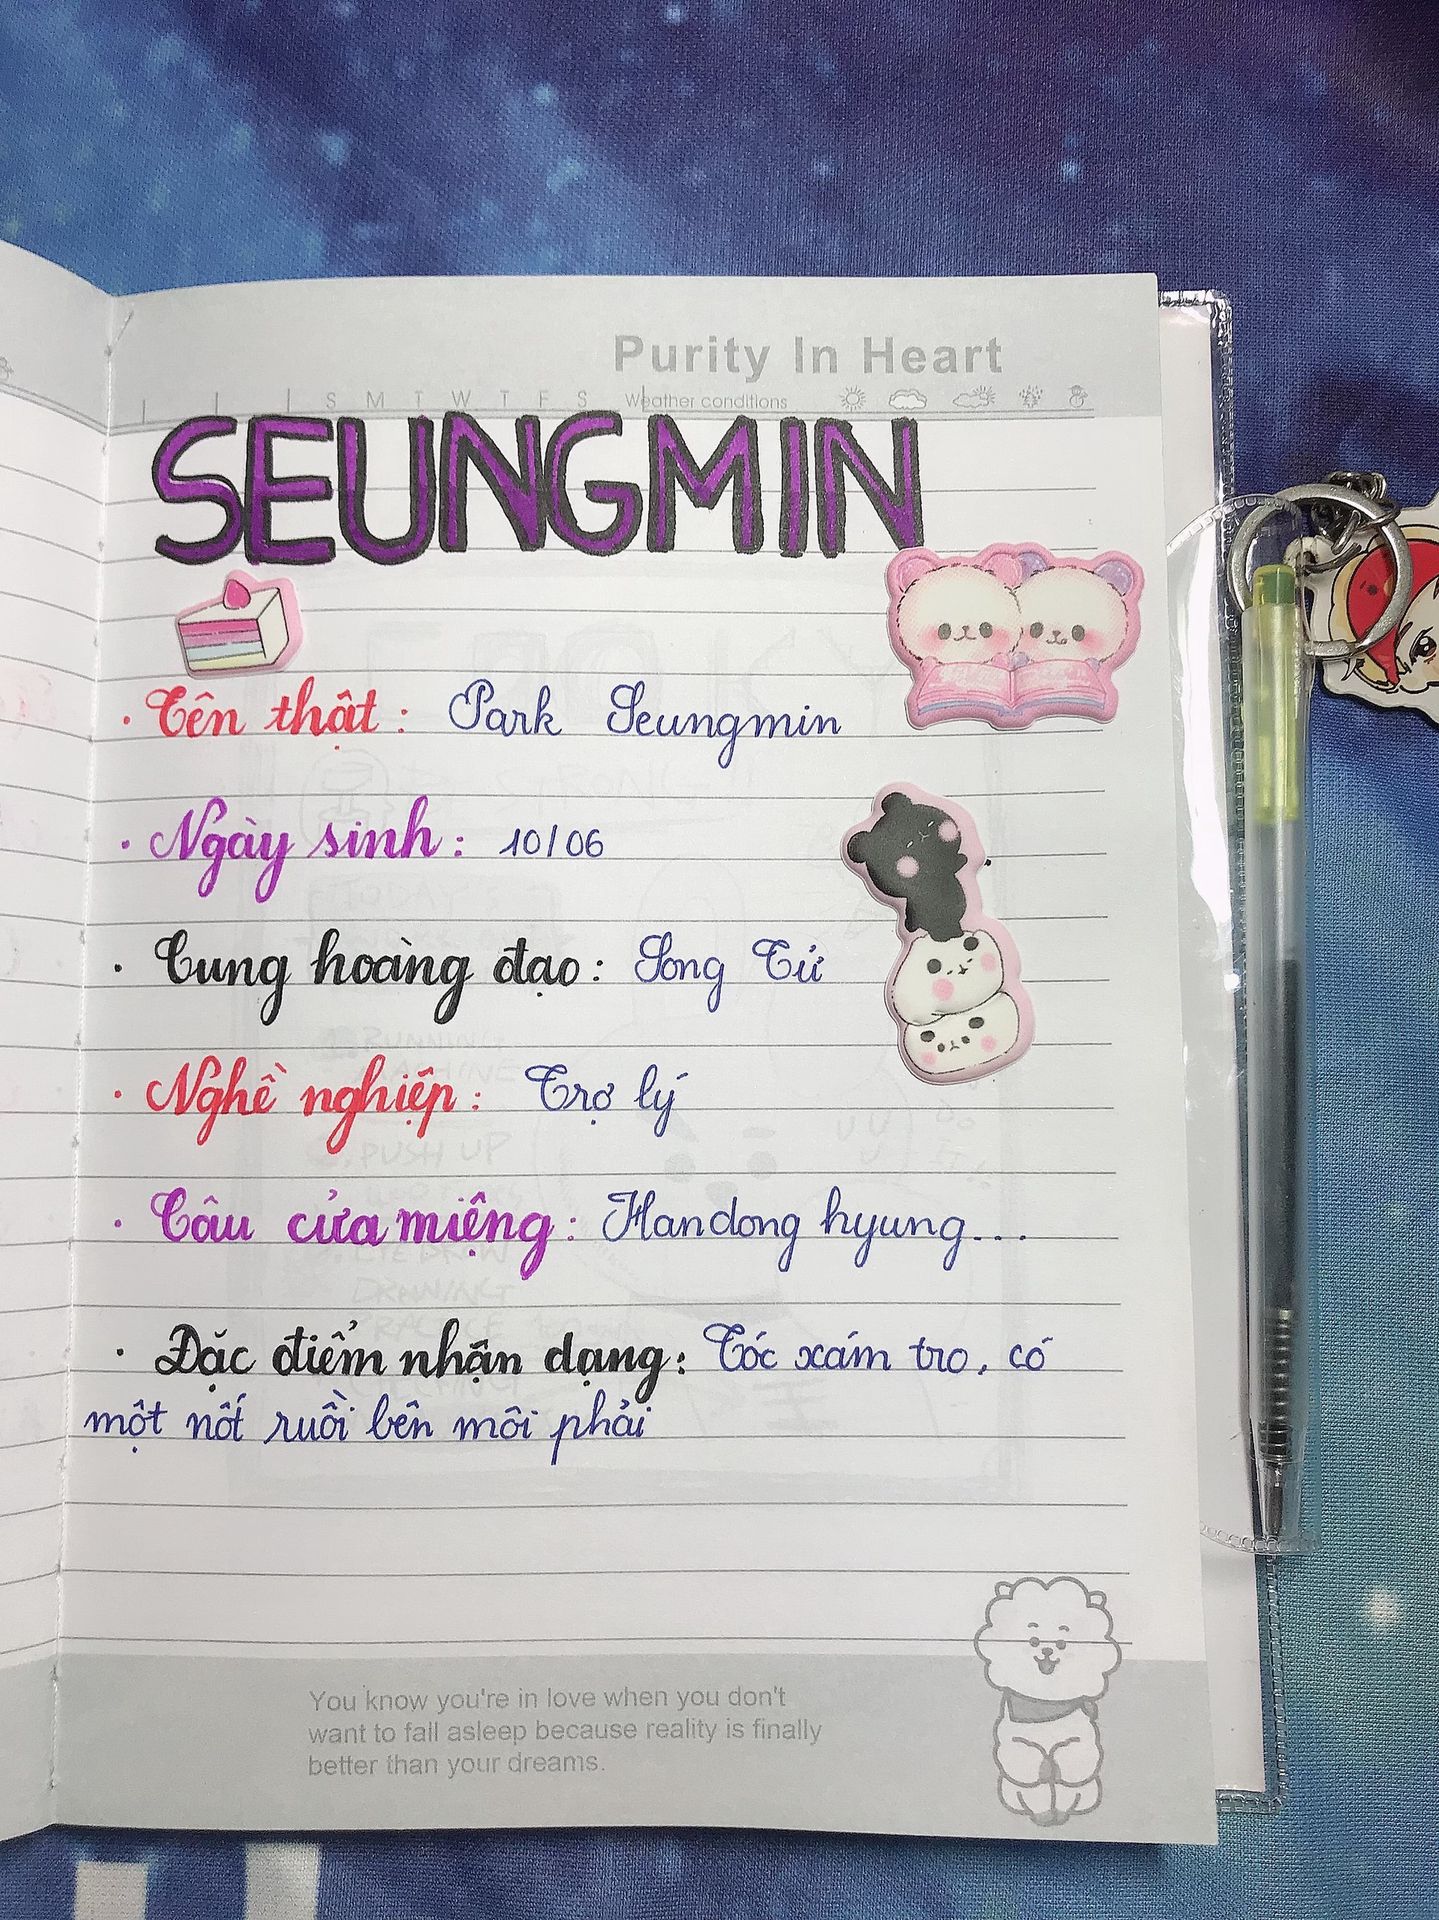 Purity In Heart
S M T W T F S Weather conditions
SEUNGMIN
· Tên thật : Park Seungmin
· Ngày sinh : 10/06
· Cung hoàng đạo : Song Tử
· Nghề nghiệp : Trợ lý
· Câu cửa miệng : Handong hyung...
· Đặc điểm nhận dạng : Tóc xám tro, có
một nốt ruồi bên môi phải
You know you're in love when you don't
want to fall asleep because reality is finally
better than your dreams.